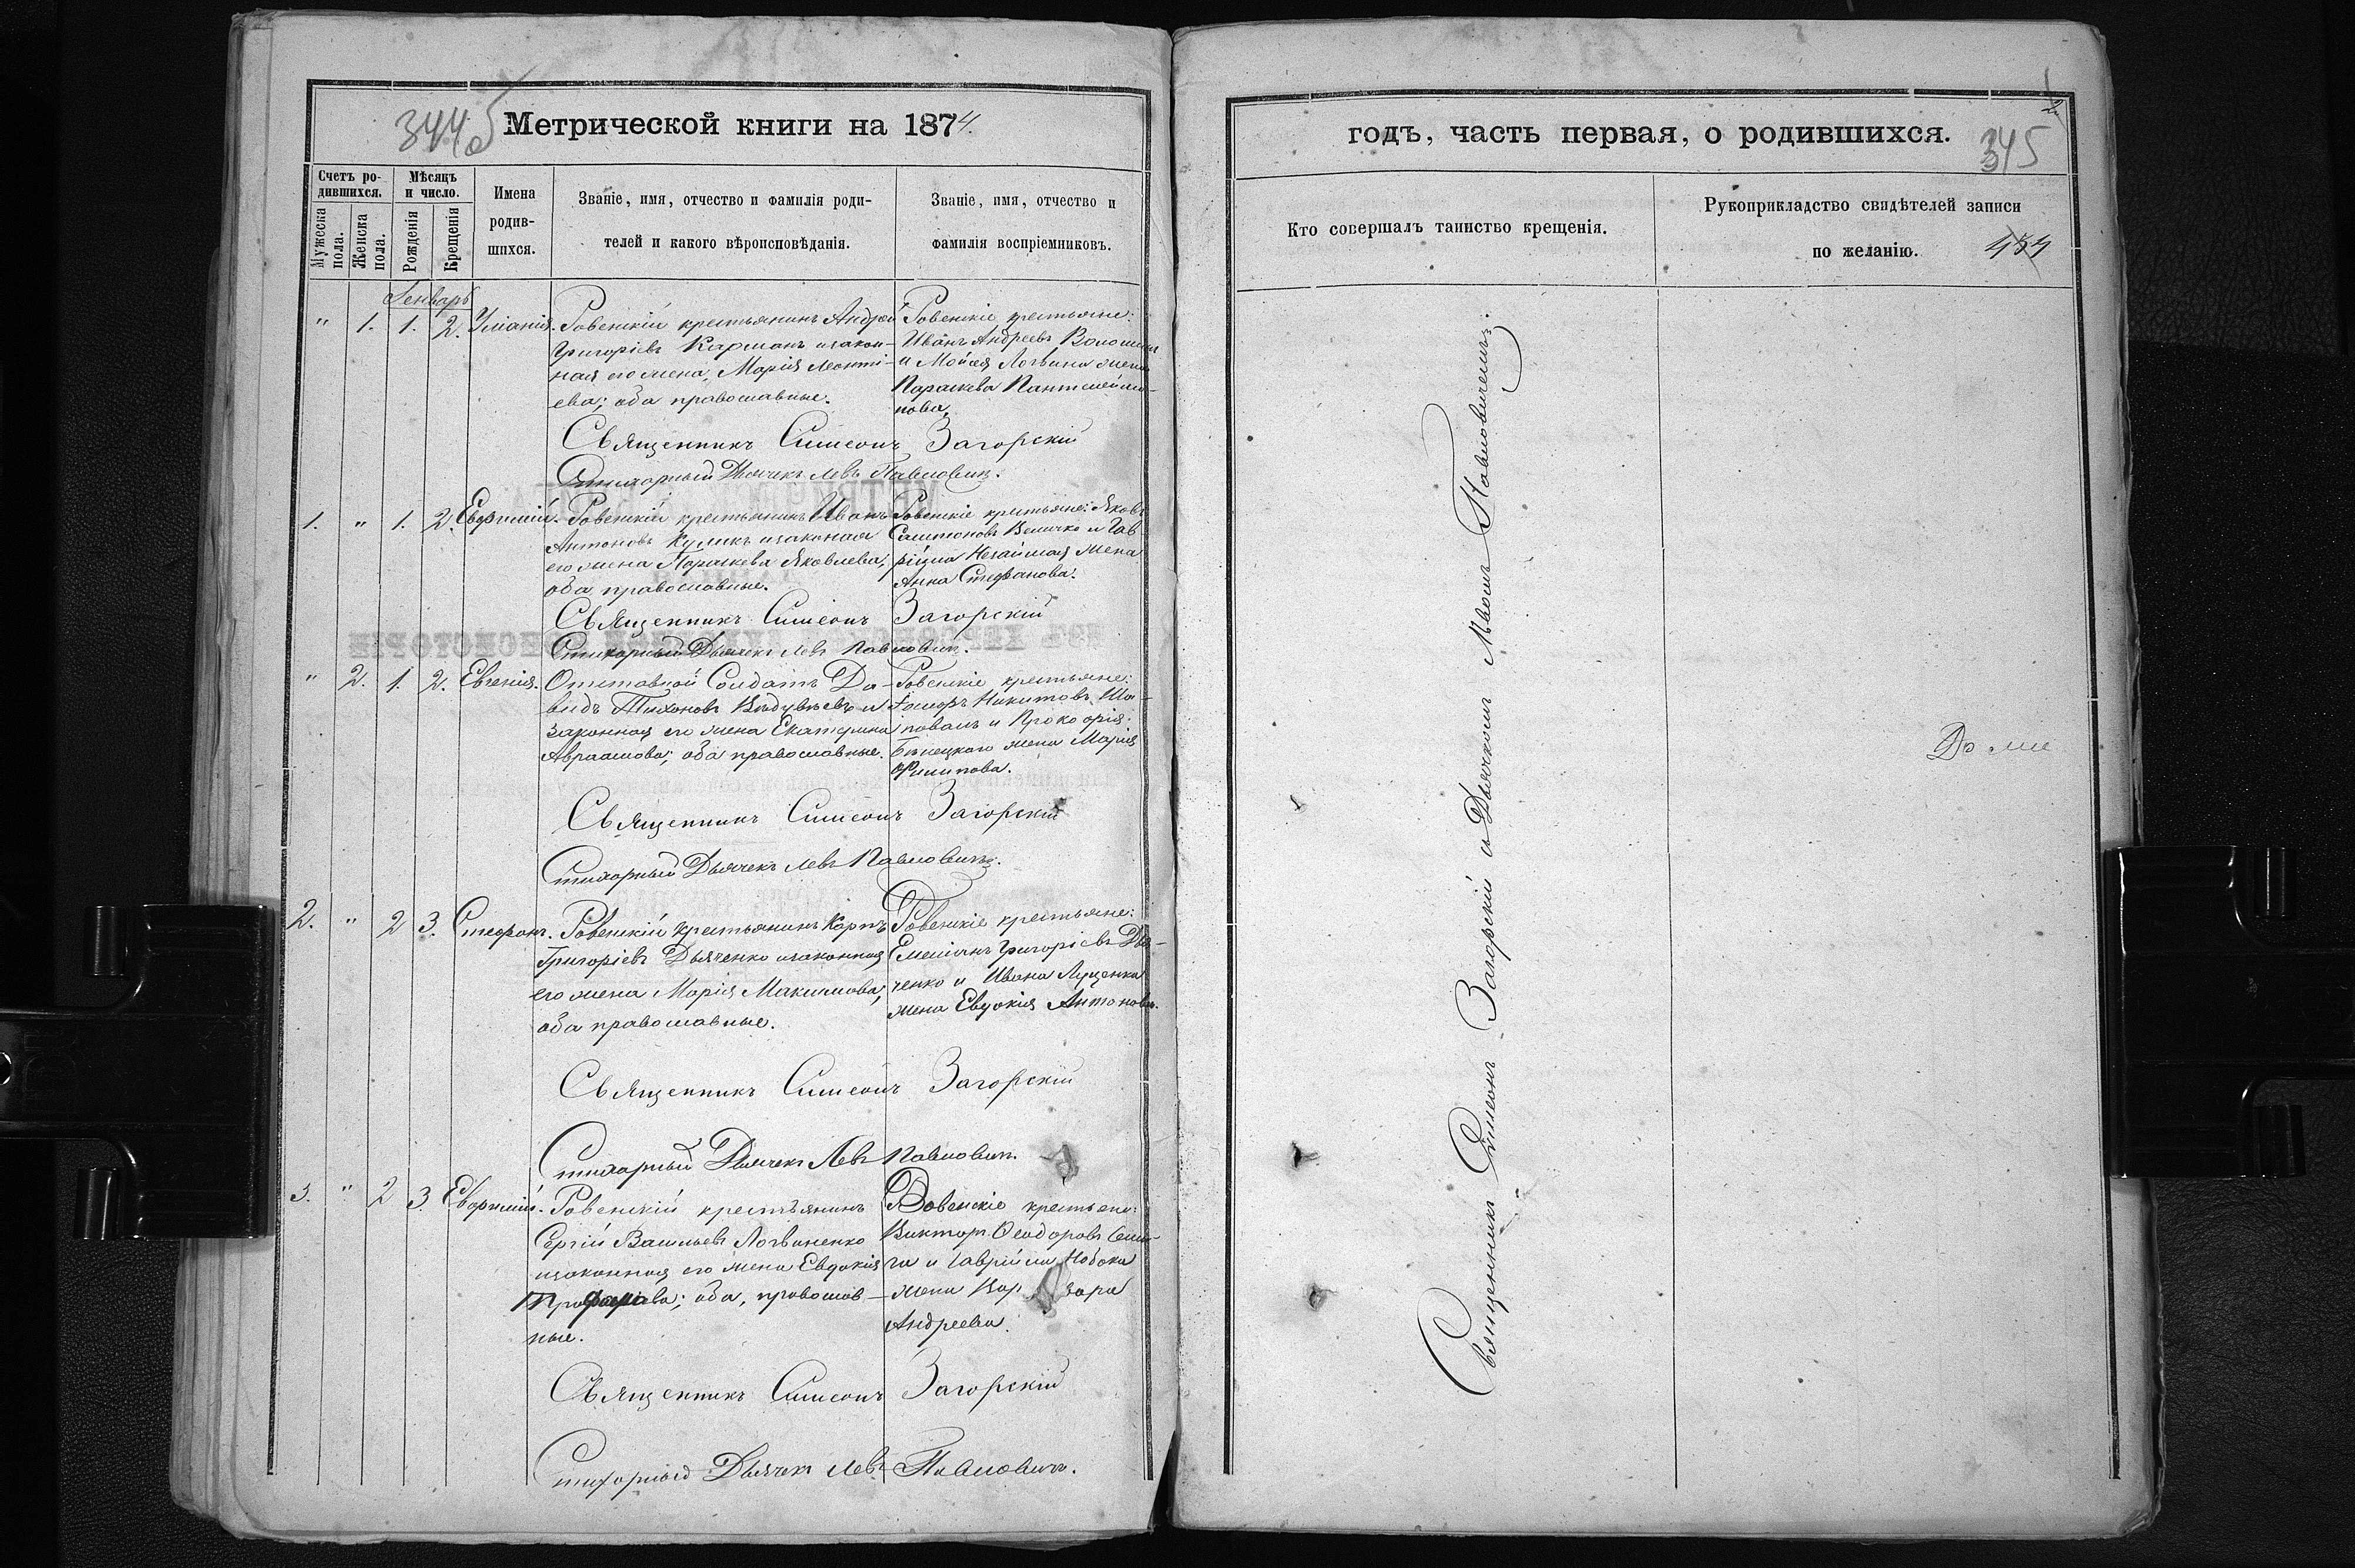 344 об
Метрической книги на 1874.
Счетъ ро-
дившихся.
Мѣсяцъ
и число.
Мужеска
пола.
Женска
пола.
Рожденія
Крещенія
Имена
родив-
шихся.
Званіе, имя, отчество и фамилія роди-
телей и какого вѣроисповѣданія.
Званіе, имя, отчество и
фамилія воспріемниковъ.
Генварь
" 1. 1. 2. Уліанія.
Ровенскій крестьянинъ Андрей
Григоріевъ Карманъ изакон-
ная его жена, Марія Леонті-
ева; оба православные.
Ровенскіе крестьяне:
Иванъ Андреевъ Волошинъ
и Мойсея Логвина жена
Параскева Пантелеймо-
нова.
Священникъ Симеонъ Загорскій
Стихарный Дьячекъ Левъ Павловичъ.
1. " 1. 2. Евфимій.
Ровенскій крестьянинъ Иванъ
Антоновъ Куликъ изаконная
его жена Параскева Яковлева;
оба православные.
Ровенскіе крестьяне: Яковъ
Величко и Гав-
ріила жена
Анна Стефанова.
Священникъ Симеонъ Загорскій
Стихарный Дьячекъ Левъ Павловичъ.
" 2. 1. 2. Евгенія.
Отставной Солдатъ Да-
видъ Тихоновъ и
законная его жена Екатерина
Авраамова; оба православные.
Ровенскіе крестьяне:
Никитовъ Ша-
повалъ и Прокофія
жена Марія
Филипова.
Священникъ Симеонъ Загорскій
Стихарный Дьячекъ Левъ Павловичъ.
2. " 2 3. Стефанъ.
Ровенскій крестьянинъ Карпъ
Григоріевъ Дьяченко изаконная
его жена Марія Максимова;
оба православные.
Ровенскіе крестьяне:
Емеліанъ Григоріевъ Дья-
ченко и Ивана Луценка
жена Евдокія Антонова.
Священникъ Симеонъ Загорскій
Стихарный Дьячекъ Левъ Павловичъ.
3. " 2 3. Евфимій.
Ровенскій крестьянинъ
Сергій Васильевъ Логвиненко
изаконная его жена Евдокія
оба, православ-
ные.
Ровенскіе крестьяне:
Викторъ Феодоровъ
и Гавріила Набока
жена Вар вара
Андреева.
Священникъ Симеонъ Загорскій
Стихарный Дьячекъ Левъ Павловичъ.
2.
годъ, часть первая, о родившихся.
345
Кто совершалъ таинство крещенія.
Рукоприкладство свидѣтелей записи
по желанію.
Священникъ Симеонъ Загорскій и Дьячкомъ Львомъ Павловичемъ.